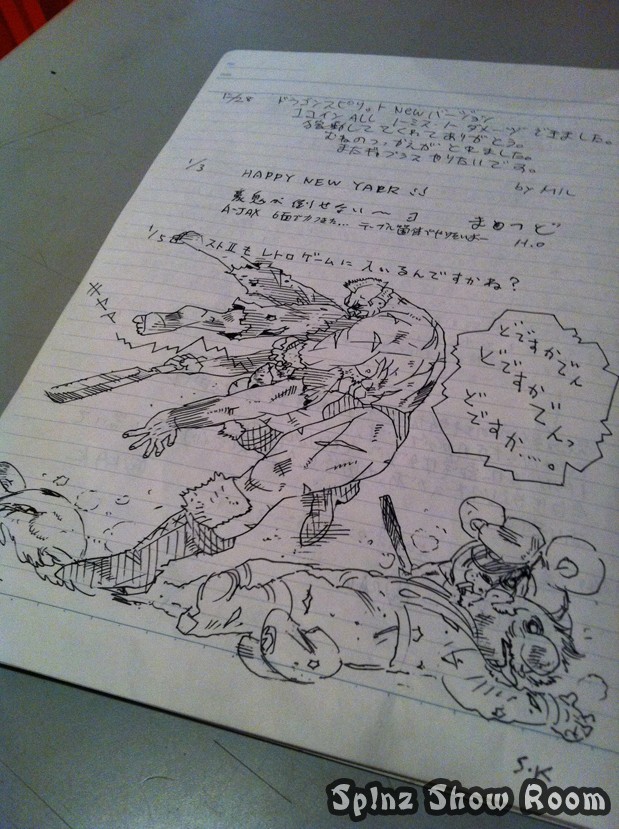 12/28 ドラゴンスピリット Newバージョン
1コイン ALL ノーミス ノーダメージ できました。
移動してくれてありがとう。
むねのつかえが とれました。
また やりたいです。
by MIL
1/3 HAPPY NEW YEAR !!
裏鬼が倒せない〜
A-JAX 6面でカンオケ... テーブル筐体でやりたいよー
H.O
1/5 ストⅡも レトロゲームに 入いるんですかね?
キャァァ
どですかでん
どですかでんっ
どですか...。
S.K
Sp1nz Show Room